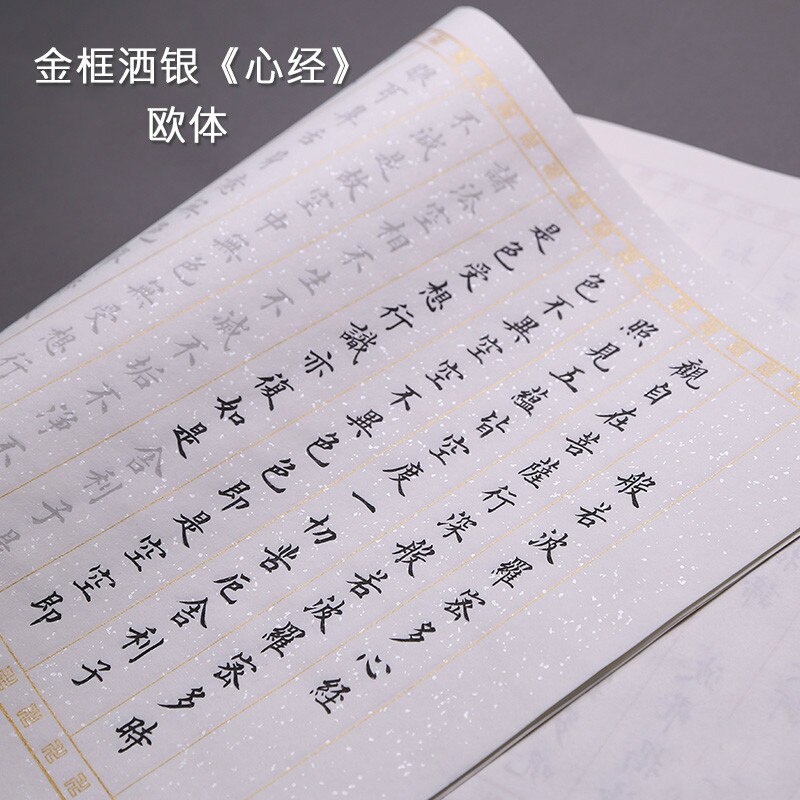 金框洒银《心经》
欧体
般若波羅密多心经
觀自在菩薩行深般若波羅密多時
照見五蘊皆空度一切苦厄舍利子
色不異空空不異色色即是空空即
是色受想行識亦復如是舍利子是
諸法空相不生不滅不垢不淨不
不減是故空中無色無受想行
眼耳鼻舌身意